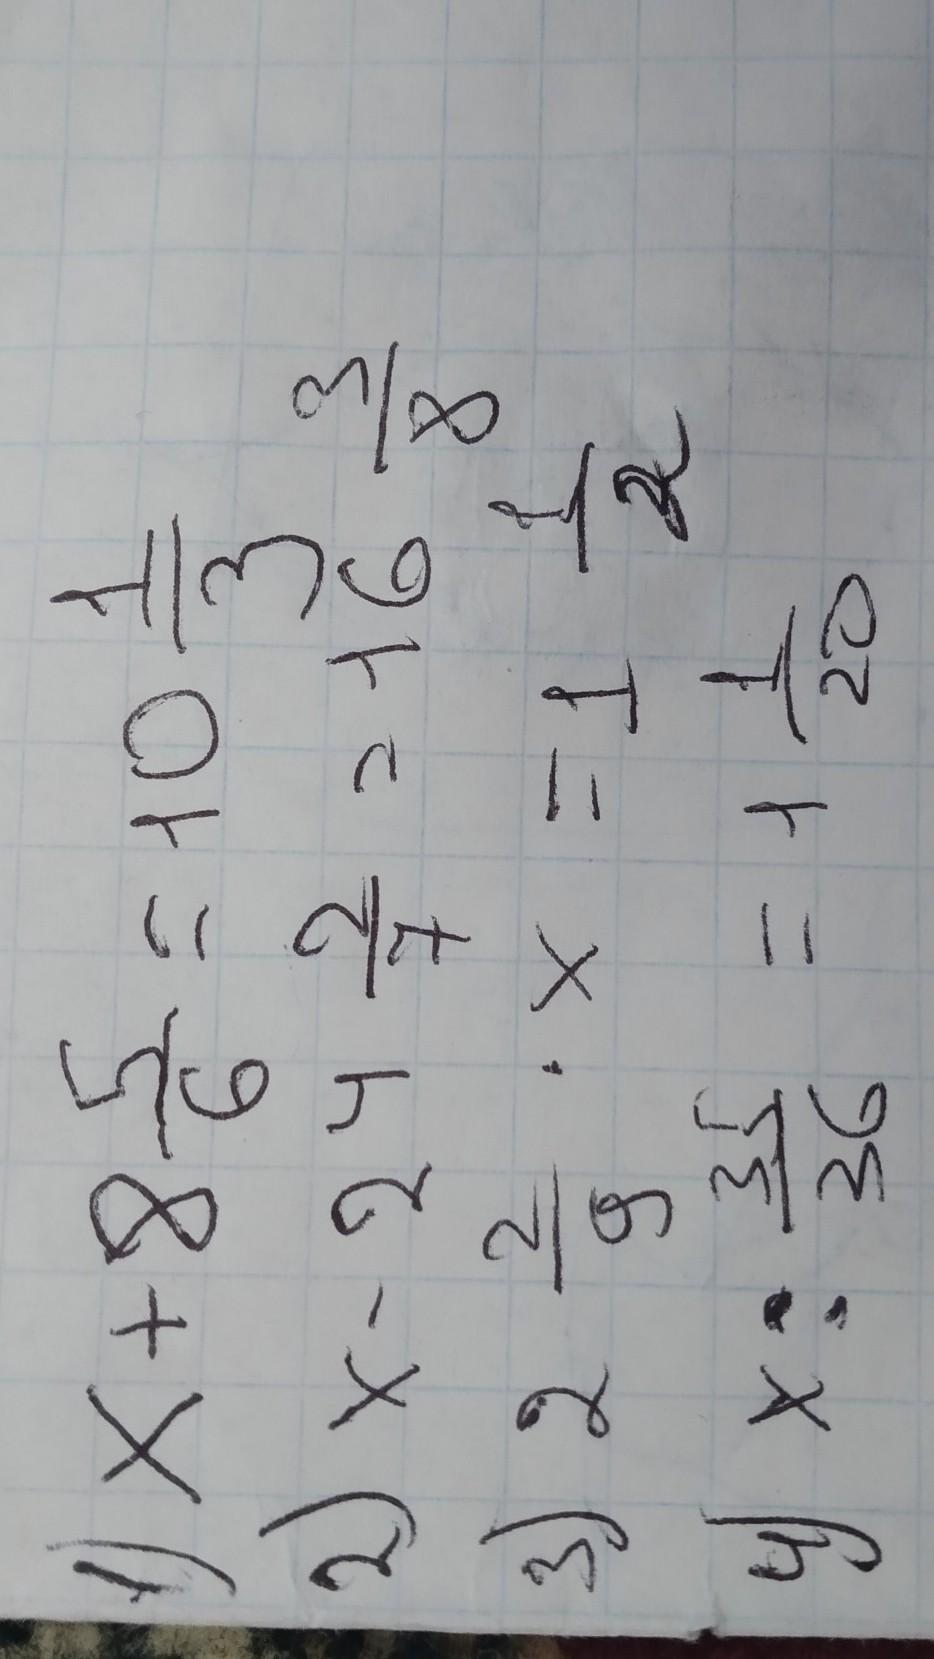 1) x + 8 5/6 = 10 1/3
2) x - 24 2/7 = 16 3/8
3) 2 2/9 · x = 1 1/2
4) x : 35/36 = 1 1/20